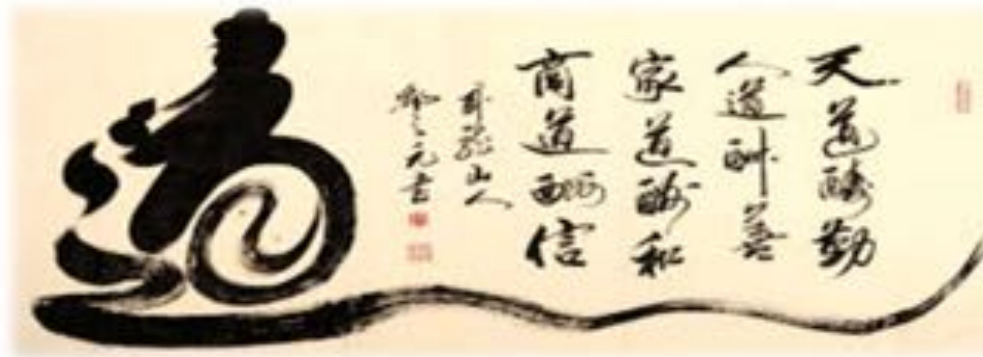 天道酬勤
人道酬善
家道酬和
商道酬信
山人
元书